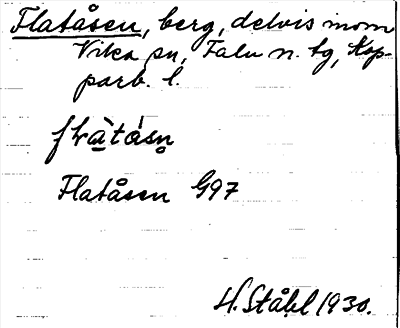 Flatåsen, berg, delvis inom
Vika sn, Falu n. tg, Kop-
parb. l.
Flatåsen G97
H. Ståhl 1930.